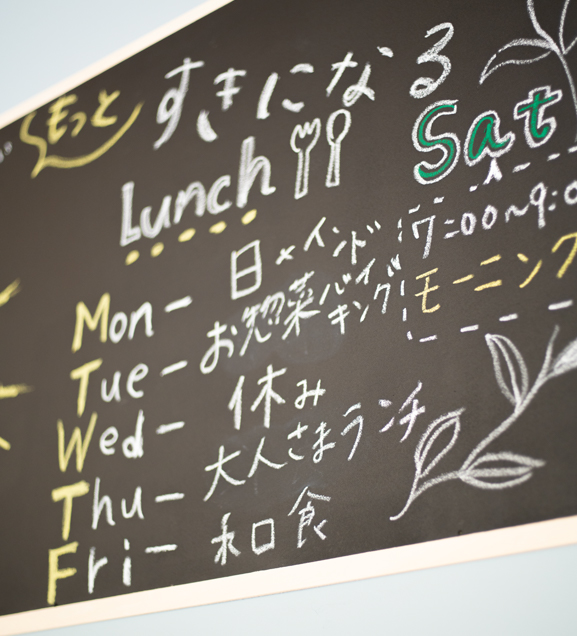 もっと
すきになる
Lunch
Sat
7:00~9:0
モーニング
Mon- 日×インド
Tue- お惣菜バイキング
Wed- 休み
Thu- 大人さまランチ
Fri- 和食